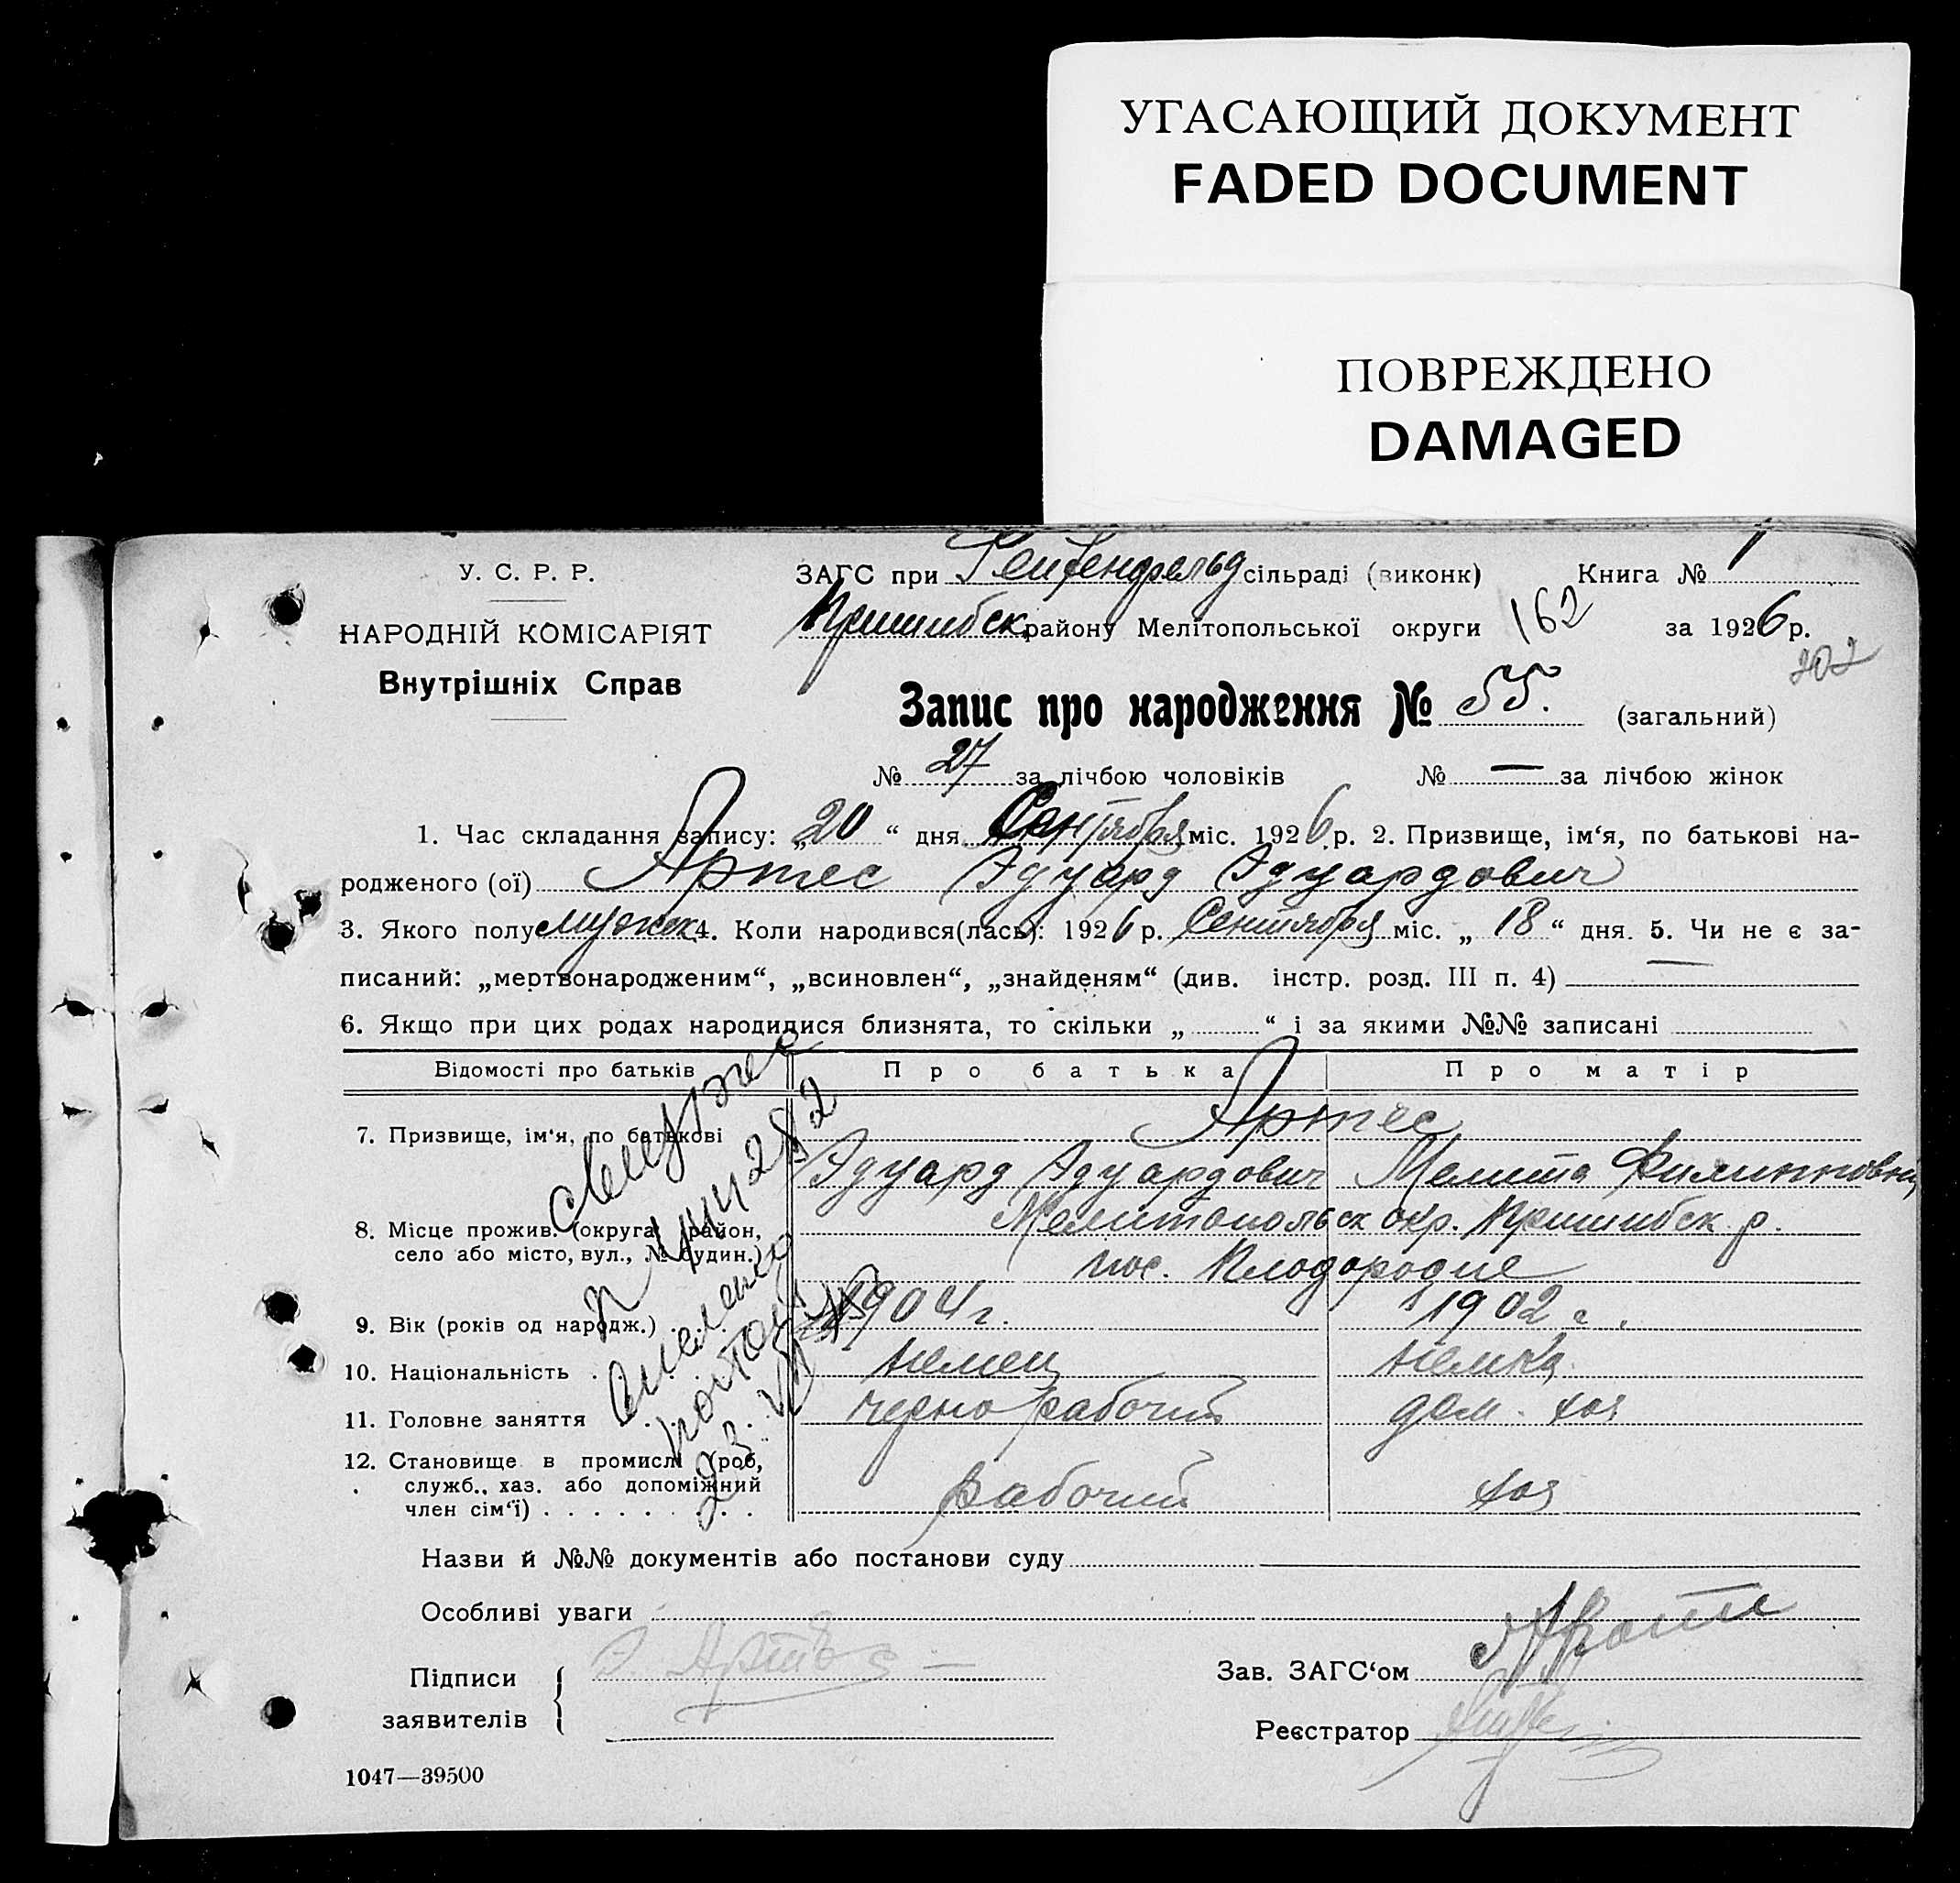 УГАСАЮЩИЙ ДОКУМЕНТ
FADED DOCUMENT
ПОВРЕЖДЕНО
DAMAGED
У. С. Р. Р.
НАРОДНІЙ КОМІСАРІЯТ
Внутрішніх Справ
ЗАГС при Рейхенфельд сільраді (виконк) Книга № 1
Пришибск району Мелітопольської округи 162 за 1926 р.
202
Запис про народження № 55. (загальний)
№ 27 за лічбою чоловіків № — за лічбою жінок
1. Час складання запису: „20“ дня Сентября міс. 1926 р. 2. Призвище, ім‘я, по батькові на-
родженого (ої) Артес Эдуард Эдуардович
3. Якого полу мужск 4. Коли народився(лась): 1926 р. Сентября міс. „18“ дня. 5. Чи не є за-
писаний: „мертвонародженим“, „всиновлен“, „знайденям“ (див. інстр. розд. III п. 4) —
6. Якщо при цих родах народилися близнята, то скільки „ “ і за якими №№ записані
Відомості про батьків Про батька Про матір
7. Призвище, ім‘я, по батькові Артес
Эдуард Эдуардович Мелита Филипповна
8. Місце прожив. (округа, район,
село або місто, вул., № будин.)
Мелитопольск окр. Пришибск. р.
пос. Плодородие
9. Вік (років од народж.) 1904 г. 1902 г.
10. Національність немец немка
11. Головне заняття чернорабочий дом. хоз
12. Становище в промислі (роб,
служб., хаз. або допоміжний
член сім‘ї) рабочий хоз
Назви й №№ документів або постанови суду
Особливі уваги
Підписи
заявителів
Э. Артес
Зав. ЗАГС‘ом
Реєстратор
1047—39500